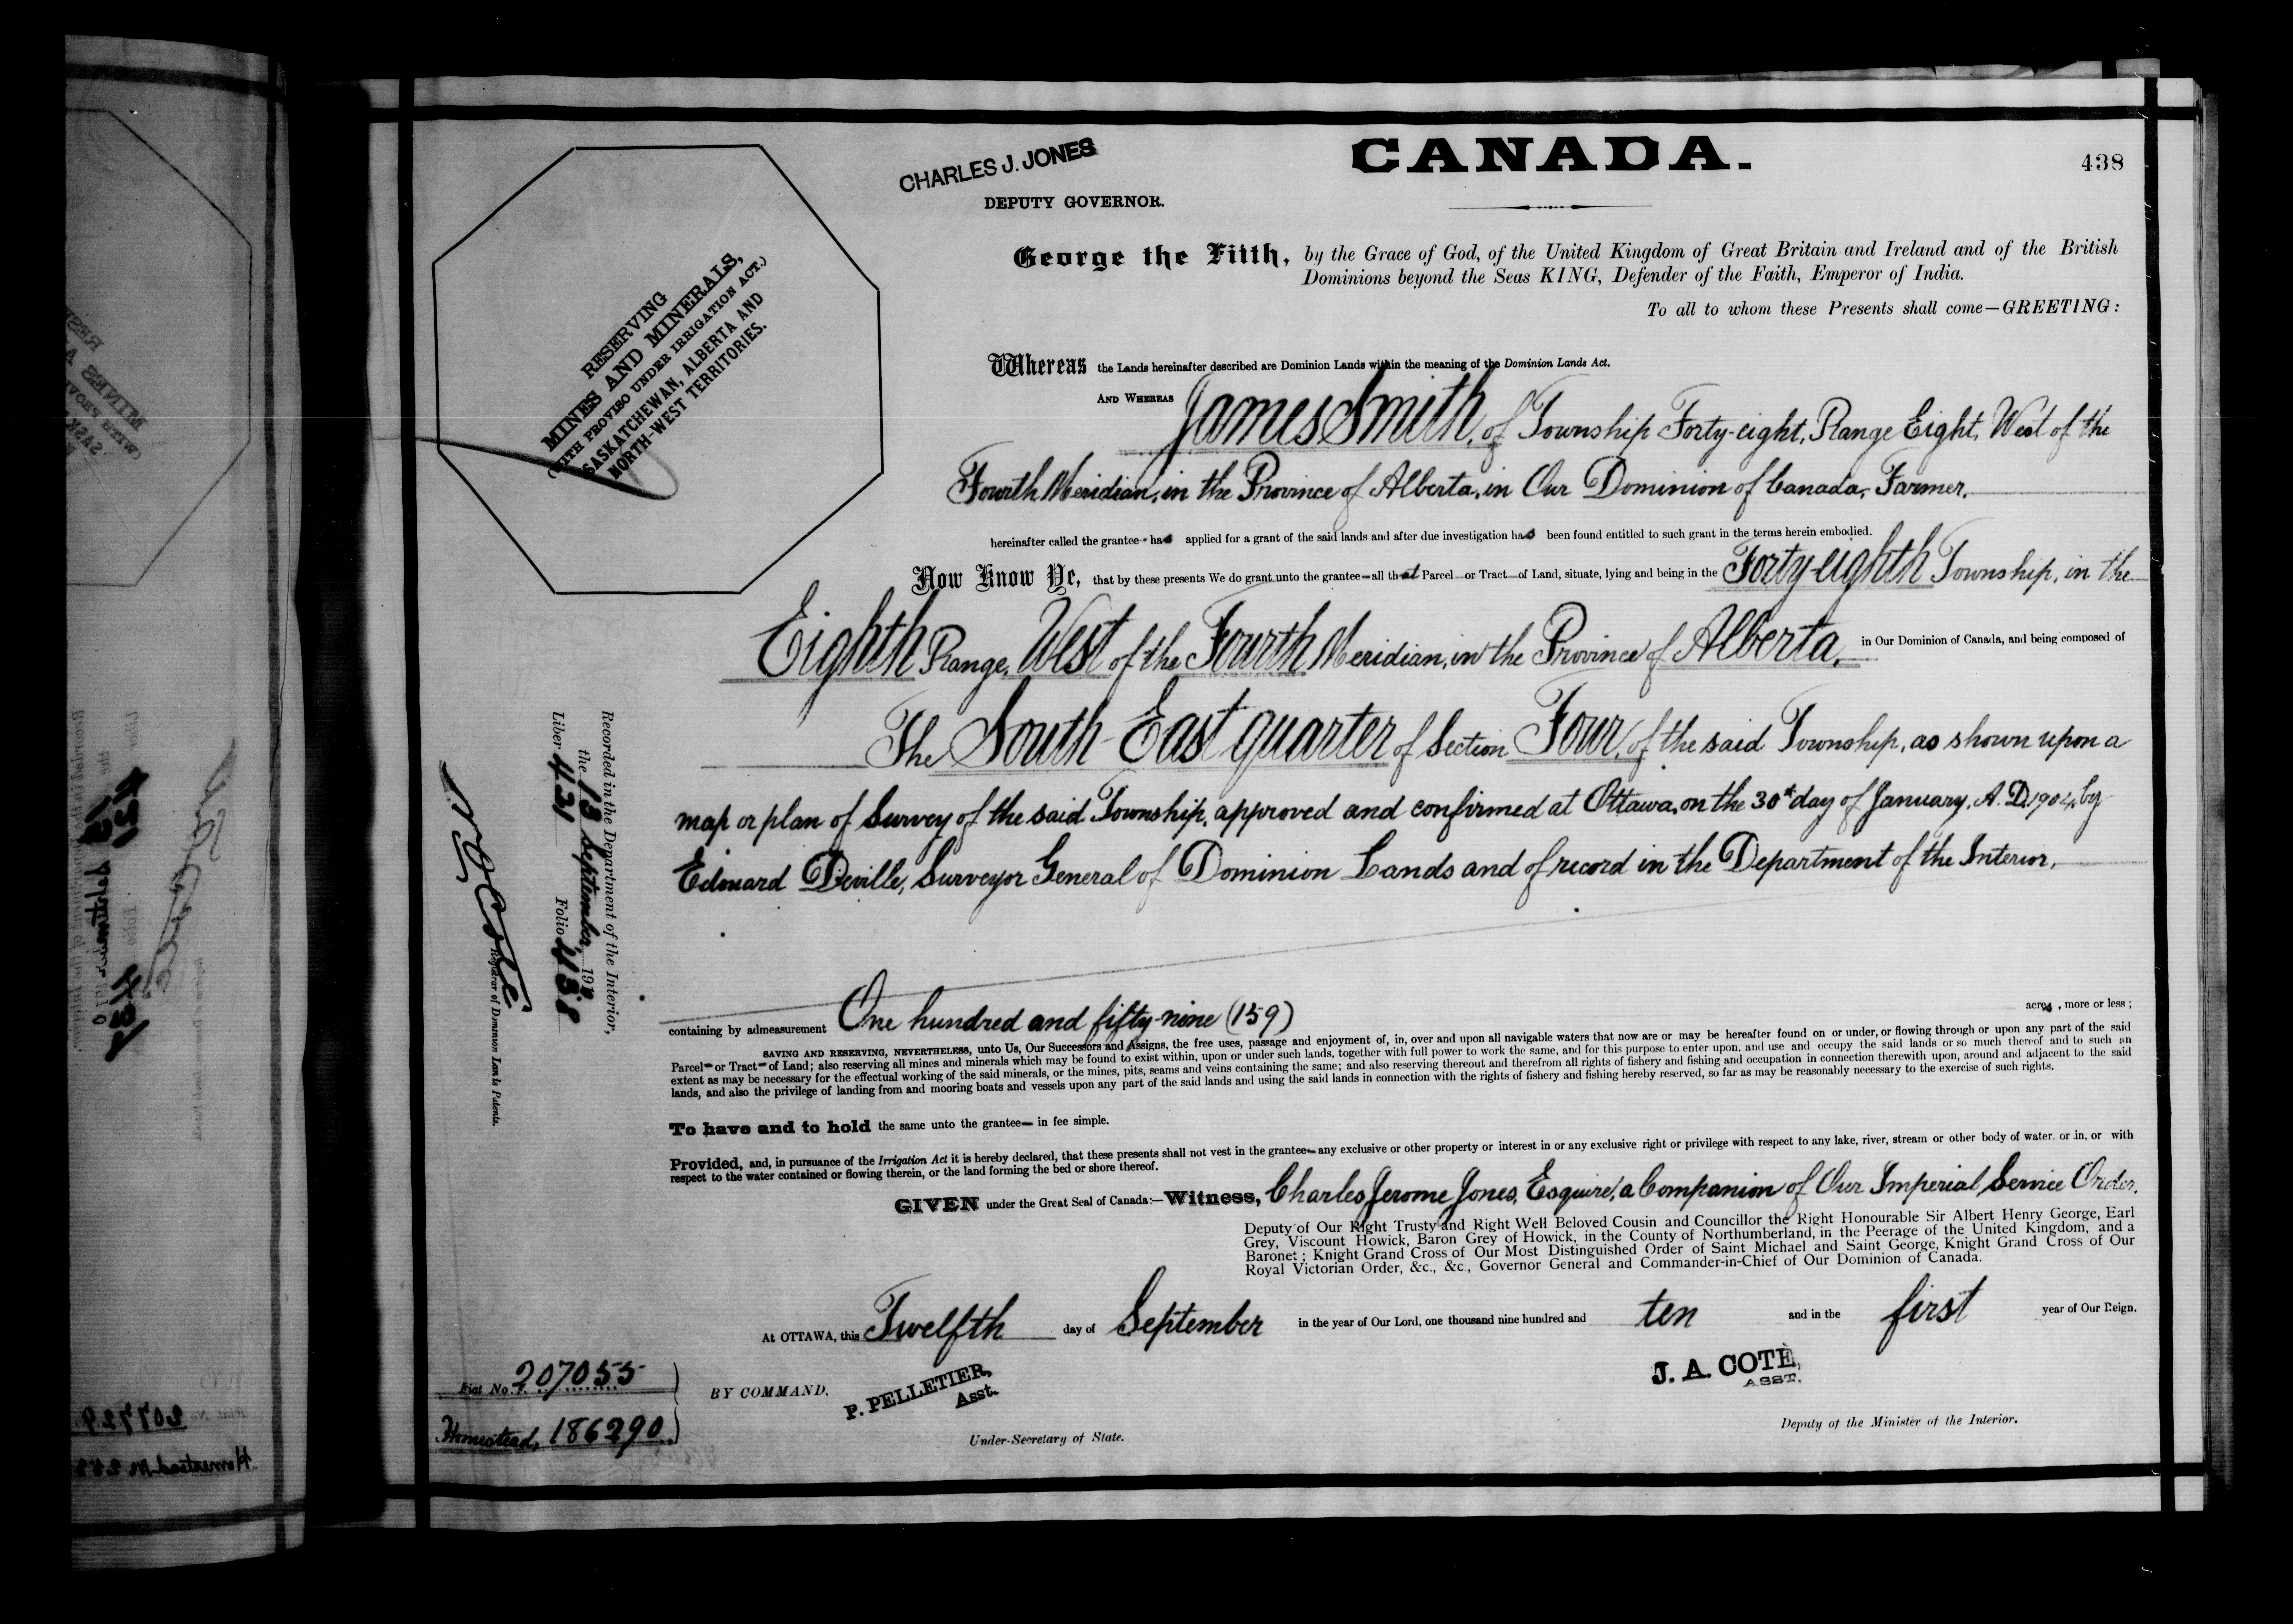 CANADA.
438
CHARLES J. JONES
DEPUTY GOVERNOR.
RESERVING
MINES AND MINERALS,
(WITH PROVISO UNDER IRRIGATION ACT.)
SASKATCHEWAN, ALBERTA AND
NORTH-WEST TERRITORIES.
George the Fifth, by the Grace of God, of the United Kingdom of Great Britain and Ireland and of the British
Dominions beyond the Seas KING, Defender of the Faith, Emperor of India.
To all to whom these Presents shall come—GREETING:
Whereas the Lands hereinafter described are Dominion Lands within the meaning of the Dominion Lands Act.
AND WHEREAS James Smith, of Township Forty-eight, Range Eight, West of the
Fourth Meridian, in the Province of Alberta, in Our Dominion of Canada, Farmer.
hereinafter called the grantee has applied for a grant of the said lands and after due investigation has been found entitled to such grant in the terms herein embodied.
Now Know Ye, that by these presents We do grant unto the grantee—all that Parcel—or Tract—of Land, situate, lying and being in the Forty-eighth Township, in the
Eighth Range, West of the Fourth Meridian, in the Province of Alberta, in Our Dominion of Canada, and being composed of
The South-East quarter of Section Four, of the said Township, as shown upon a
map or plan of Survey of the said Township, approved and confirmed at Ottawa, on the 30th day of January, A.D. 1904, by
Edouard Deville, Surveyor General of Dominion Lands and of record in the Department of the Interior.
containing by admeasurement One hundred and fifty-nine (159) acres, more or less;
SAVING AND RESERVING, NEVERTHELESS, unto Us, Our Successors and Assigns, the free uses, passage and enjoyment of, in, over and upon all navigable waters that now are or may be hereafter found on or under, or flowing through or upon any part of the said
Parcel—or Tract—of Land; also reserving all mines and minerals which may be found to exist within, upon or under such lands, together with full power to work the same, and for this purpose to enter upon, and use and occupy the said lands or so much thereof and to such an
extent as may be necessary for the effectual working of the said minerals, or the mines, pits, seams and veins containing the same; and also reserving thereout and therefrom all rights of fishery and fishing and occupation in connection therewith upon, around and adjacent to the said
lands, and also the privilege of landing from and mooring boats and vessels upon any part of the said lands and using the said lands in connection with the rights of fishery and fishing hereby reserved, so far as may be reasonably necessary to the exercise of such rights.
To have and to hold the same unto the grantee— in fee simple.
Provided, and, in pursuance of the Irrigation Act it is hereby declared, that these presents shall not vest in the grantee—any exclusive or other property or interest in or any exclusive right or privilege with respect to any lake, river, stream or other body of water. or in, or with
respect to the water contained or flowing therein, or the land forming the bed or shore thereof.
GIVEN under the Great Seal of Canada:—Witness, Charles Jerome Jones, Esquire, a Companion of Our Imperial Service Order,
Deputy of Our Right Trusty and Right Well Beloved Cousin and Councillor the Right Honourable Sir Albert Henry George, Earl
Grey, Viscount Howick, Baron Grey of Howick, in the County of Northumberland, in the Peerage of the United Kingdom, and a
Baronet; Knight Grand Cross of Our Most Distinguished Order of Saint Michael and Saint George, Knight Grand Cross of Our
Royal Victorian Order, &c., &c., Governor General and Commander-in-Chief of Our Dominion of Canada.
At OTTAWA, this Twelfth day of September in the year of Our Lord, one thousand nine hundred and ten and in the first year of Our Reign.
BY COMMAND,
P. PELLETIER,
Asst.
Under-Secretary of State.
J. A. COTÈ,
ASST.
Deputy of the Minister of the Interior.
Recorded in the Department of the Interior,
the 13 September, 1910
Liber 431 Folio 438
Registrar of Dominion Lands Patents.
Fiat No. 207055
Homestead, 186290